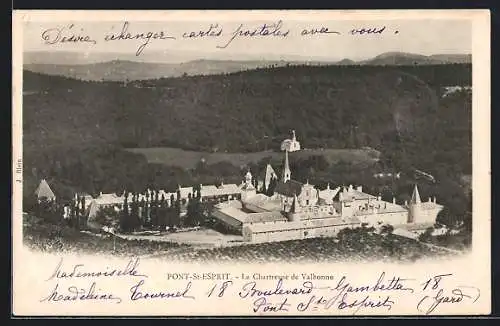 Désire échanger cartes postales avec vous.
J. Blein
PONT-St-ESPRIT - La Chartreuse de Valbonne
Mademoiselle
Madeleine Tournel 18 Boulevard Gambetta 18
Pont St Esprit (Gard)